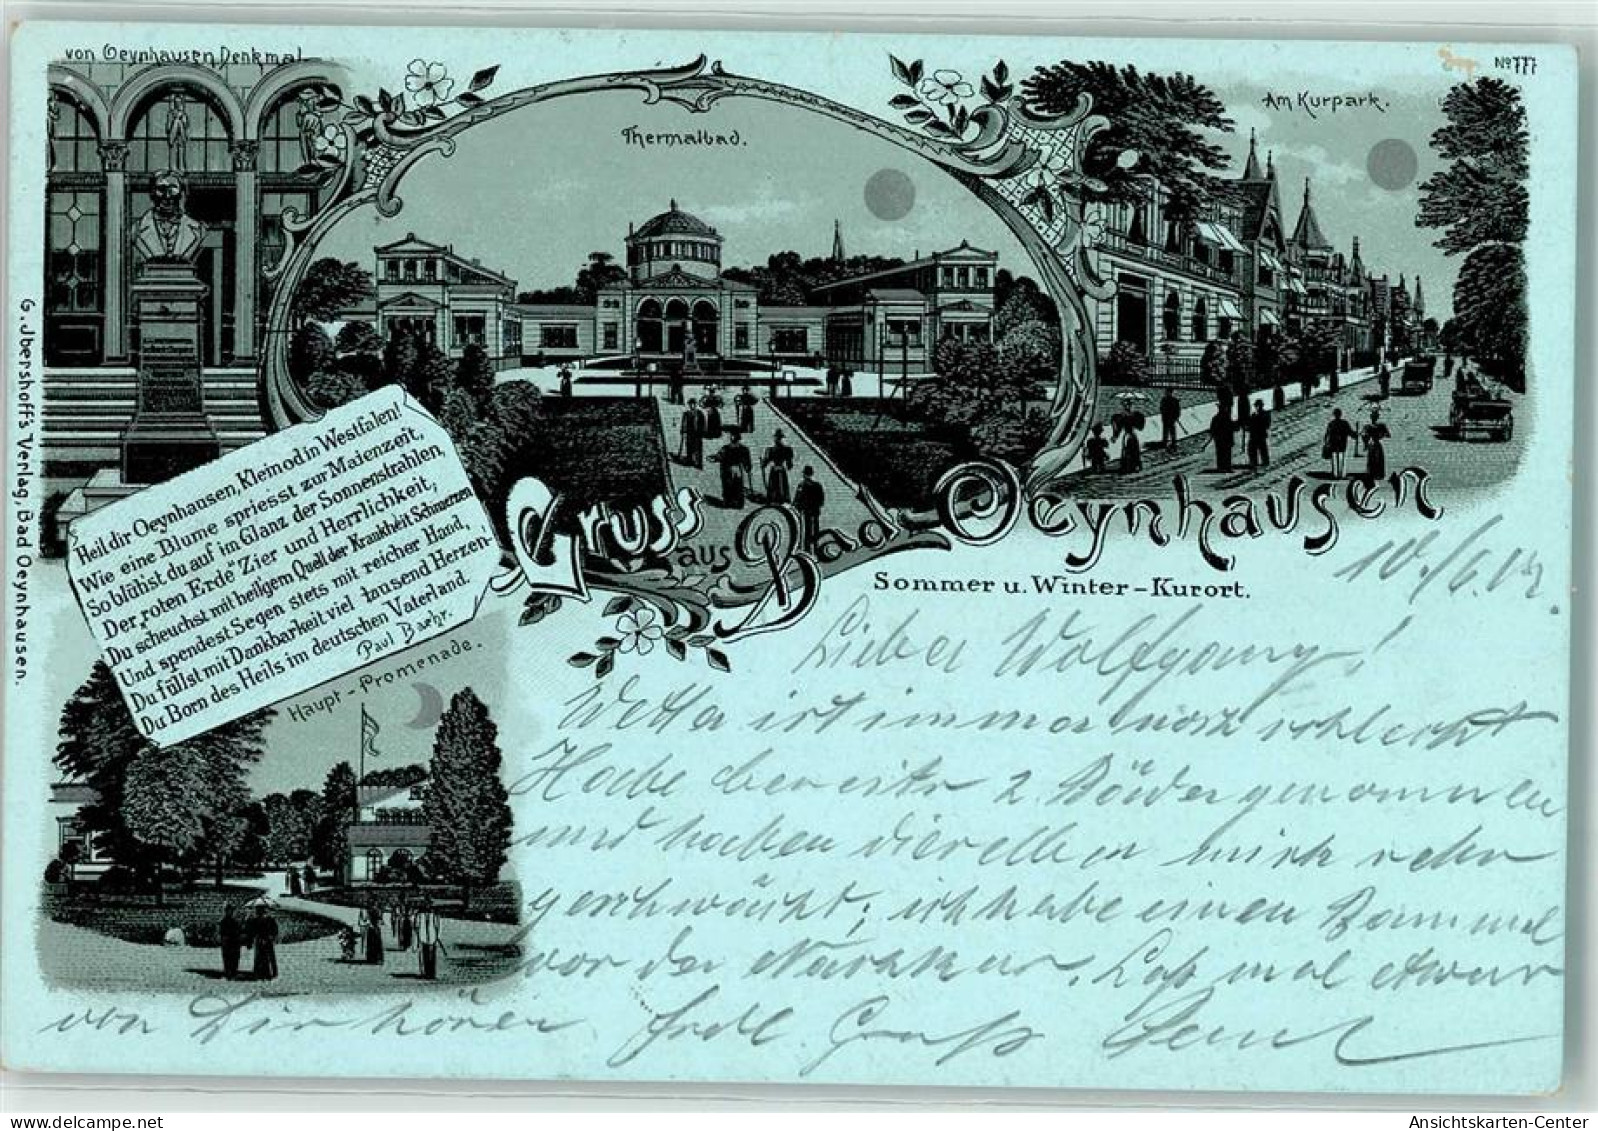 von Oeynhausen Denkmal.
Thermalbad.
Am Kurpark.
No 777
G. Jbershoff's Verlag, Bad Oeynhausen.
Heil dir Oeynhausen, Kleinod in Westfalen!
Wie eine Blume spriesst zur Maienzeit,
So blühst du auf im Glanz der Sonnenstrahlen,
Der „roten Erde" Zier und Herrlichkeit;
Du scheuchst mit heilgem Quell der Krankheit Schmerzen
Und spendest Segen stets mit reicher Hand,
Du füllst mit Dankbarkeit viel tausend Herzen-
Du Born des Heils im deutschen Vaterland.
Paul Baehr.
Haupt-Promenade.
Gruss aus Bad-Oeynhausen
Sommer u. Winter-Kurort.
10./6.02.
Lieber Wolfgang!
Wetter ist immer noch schlecht
Habe bereits 2 Bäder genommen
und haben dieselben mich sehr
geschwächt; ich habe einen Bammel
vor der Nachkur. Laß mal etwas
von Dir hören frdl. Gruß Paul
Ansichtskarten-Center